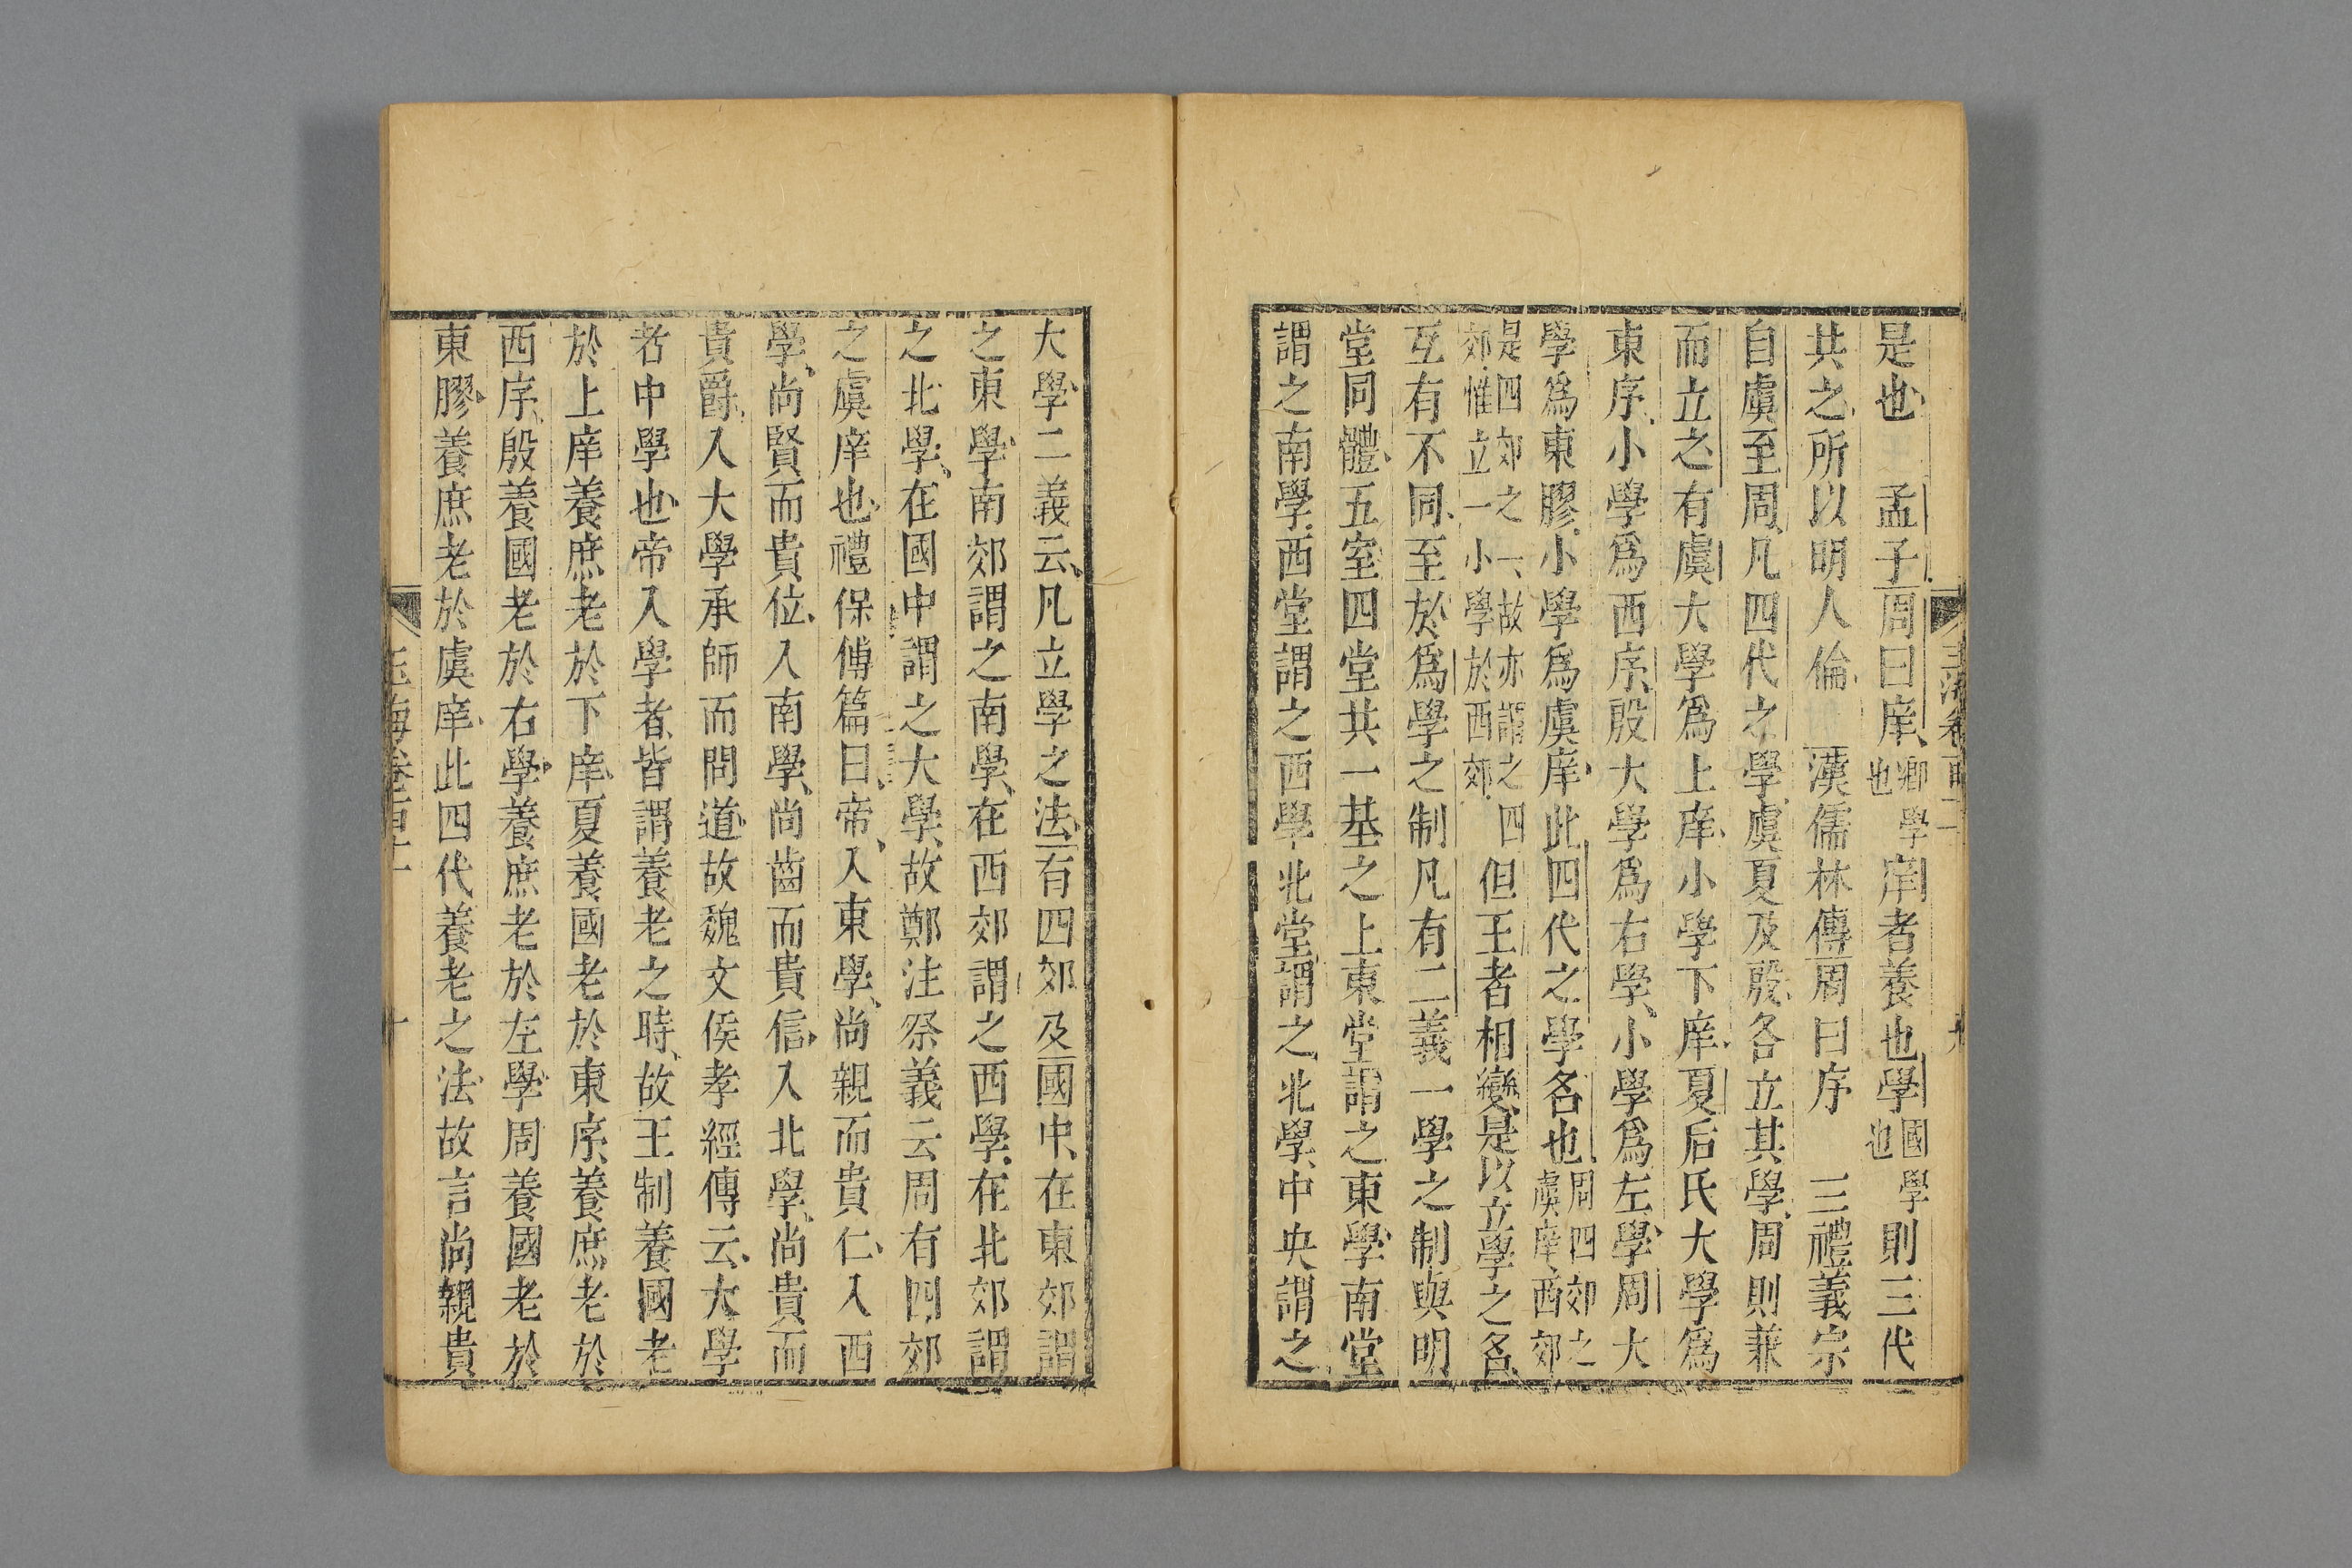 是也　孟子周曰庠鄉學也庠者養也學國學也則三代
共之所以明人倫　漢儒林傳周曰序　三禮義宗
自虞至周凡四代之學虞夏及殷各立其學周則兼
而立之有虞大學爲上庠小學下庠夏后氏大學爲
東序小學爲西序殷大學爲右學小學爲左學周大
學爲東膠小學爲虞庠此四代之學名也周四郊之虞庠西郊
是四郊之一故亦謂之四郊惟立一小學於西郊但王者相變是以立學之名
互有不同至於爲學之制凡有二義一學之制與明
堂同體五室四堂共一基之上東堂謂之東學南堂
謂之南學西堂謂之西學北堂謂之北學中央謂之
大學二義云凡立學之法有四郊及國中在東郊謂
之東學南郊謂之南學在西郊謂之西學在北郊謂
之北學在國中謂之大學故鄭注祭義云周有四郊
之虞庠也禮保傅篇曰帝入東學尚親而貴仁入西
學尚賢而貴位入南學尚齒而貴信入北學尚貴而
貴爵入大學承師而問道故魏文侯孝經傳云大學
者中學也帝入學者皆謂養老之時故王制養國老
於上庠養庶老於下庠夏養國老於東序養庶老於
西序殷養國老於右學養庶老於左學周養國老於
東膠養庶老於虞庠此四代養老之法故言尚親貴